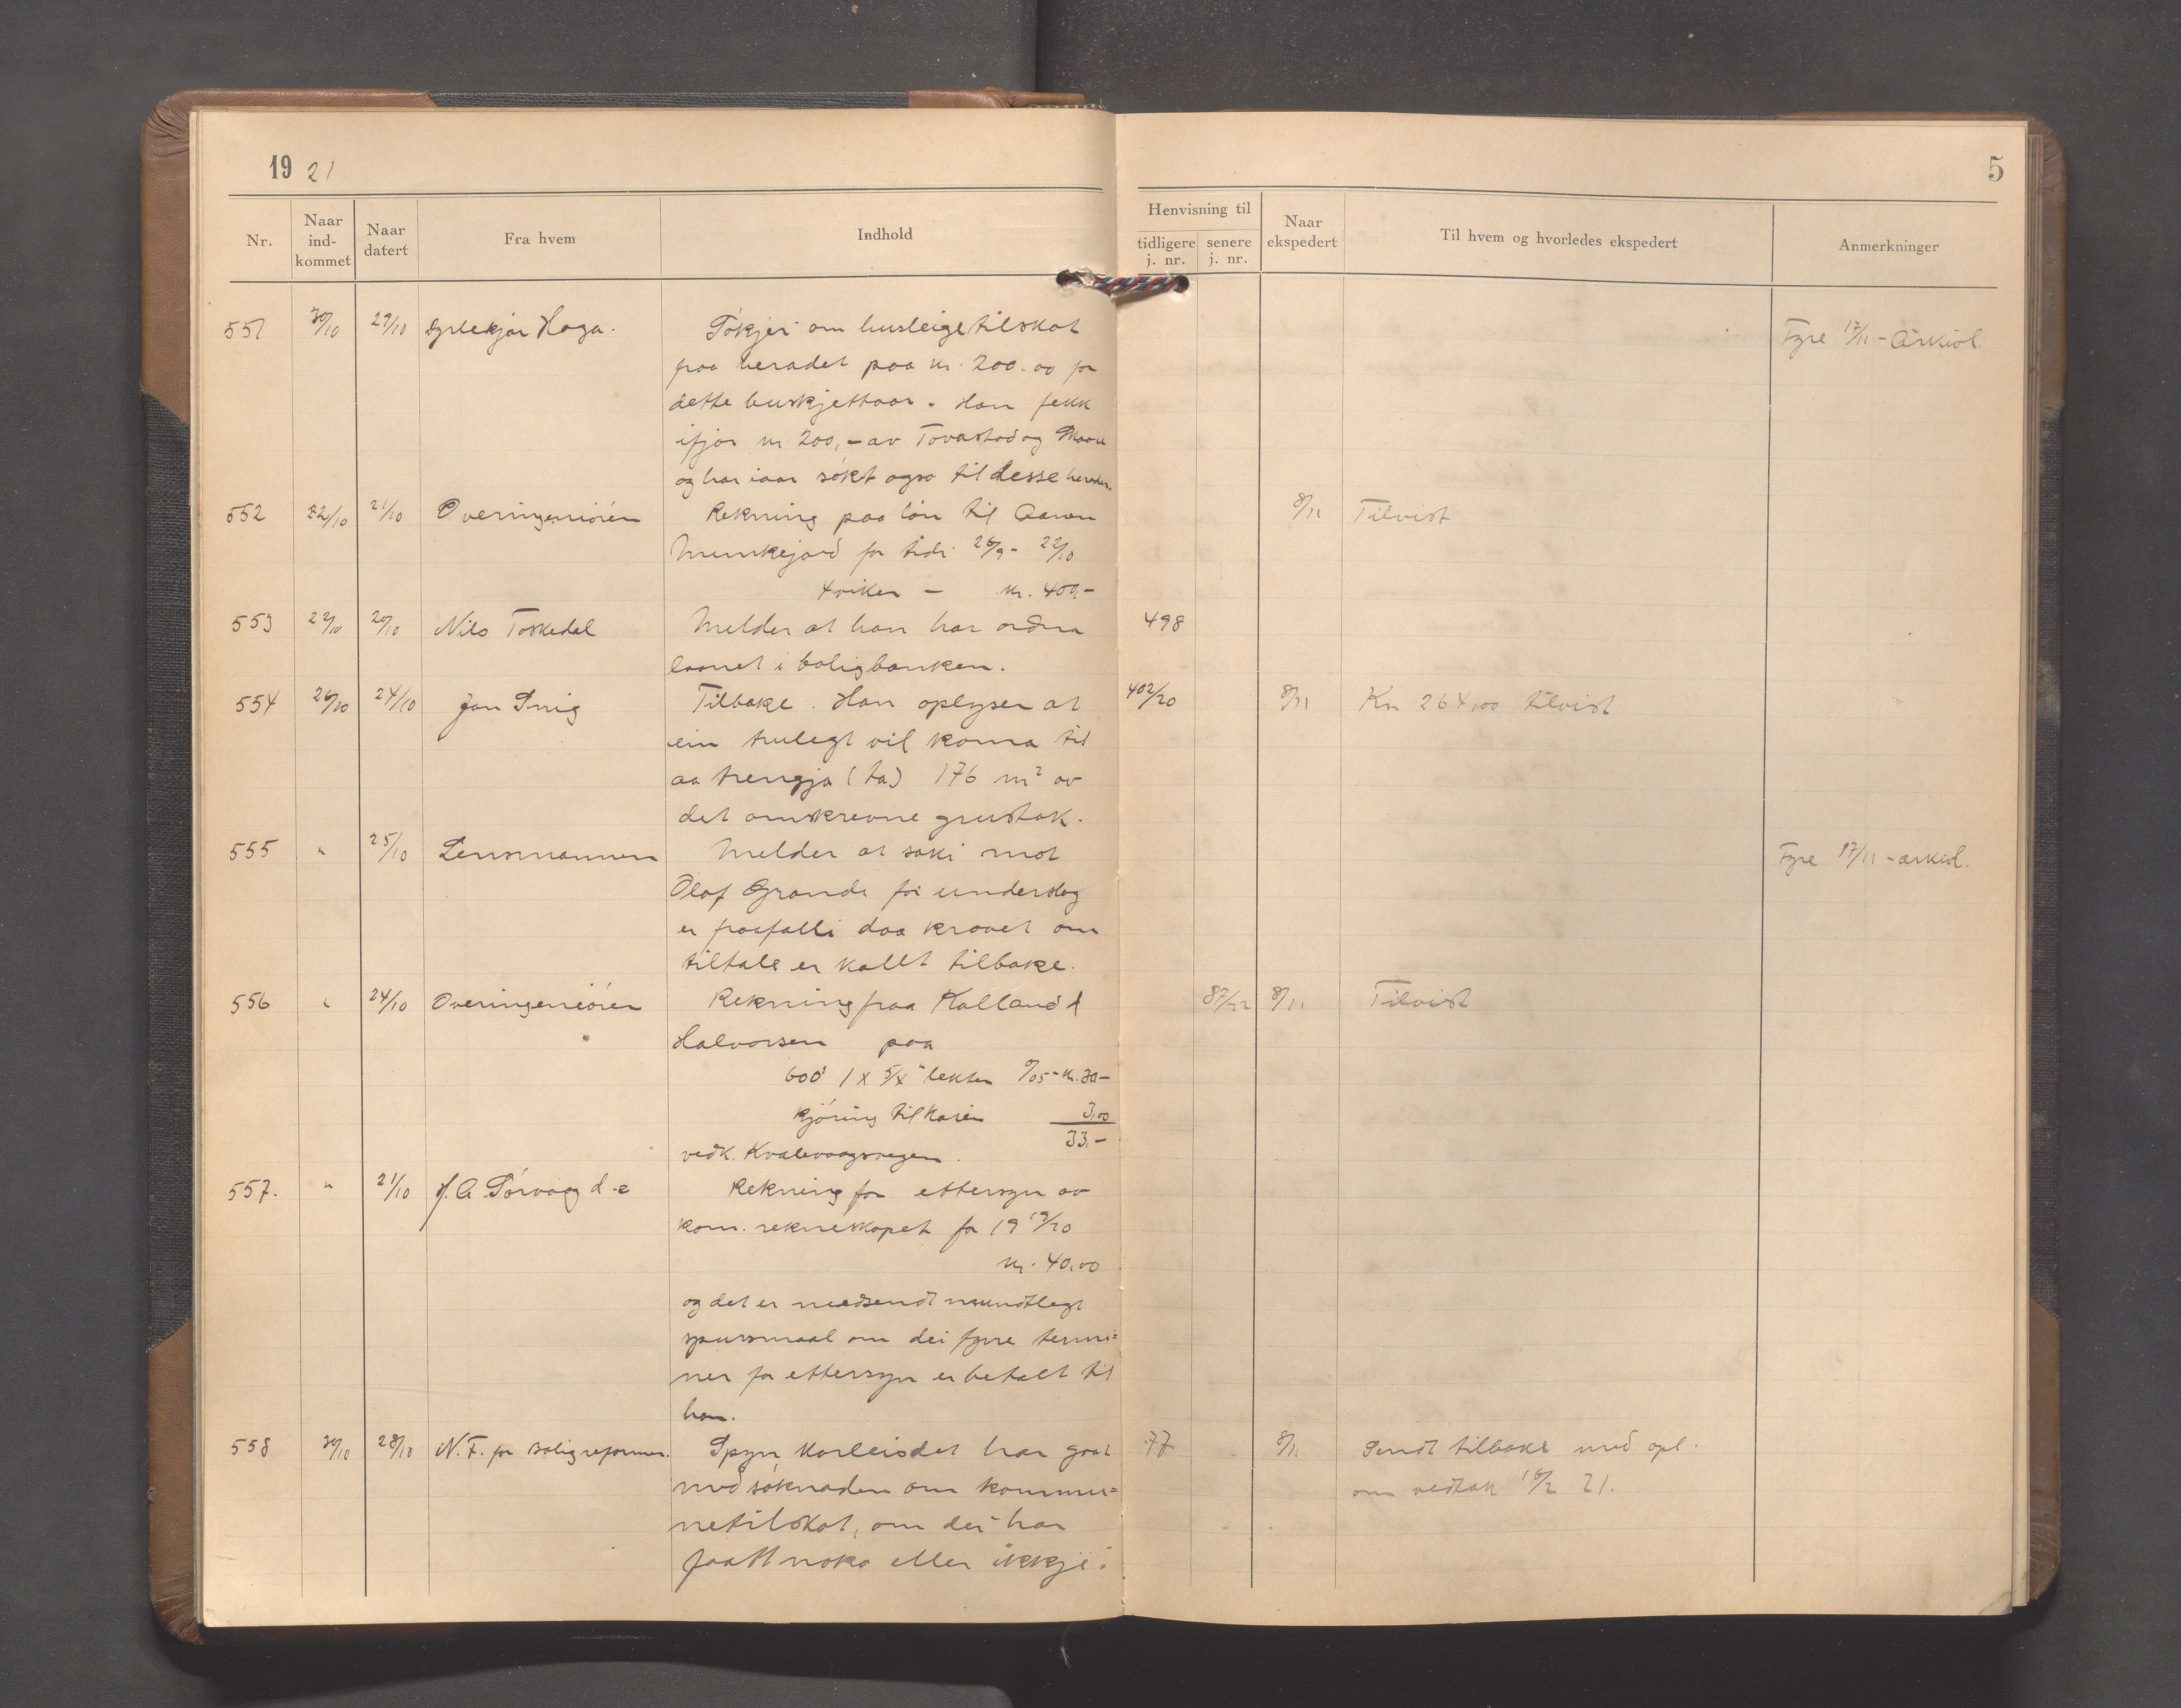 19 21
5
Nr.
Naar ind-kommet
Naar datert
Fra hvem
Indhold
Henvisning til
tidligere j. nr.
senere j. nr.
Naar ekspedert
Til hvem og hvorledes ekspedert
Anmerkninger
551 30/10 29/10 Dyrlekjar Haga. Sökjer om husleigetilskot Fyre 17/11 - Arkivl.
fraa heradet paa kr. 200.00 for
dette buskjettaar. Han fekk
ifjor kr 200,- av Torvastad og Skaare
og har iaar sökt ogso til desse herader.
552 22/10 21/10 Overingeniören Rekning paa lön til Aanen 8/11 Tilvist
Munkejord for tidi 26/9 - 22/10
4 viker - kr. 400,-
553 22/10 20/10 Nils Toskedal Melder at han har ordna 498
laanet i boligbanken.
554 26/10 24/10 Jon Snig Tilbake. Han oplyser at 402/20 8/11 Kr 264,00 tilvist
ein trulegt vil koma til
aa trengja (ta) 176 m² av
det omskrevne grustak.
555 " 25/10 Lensmannen Melder at saki mot Fyre 17/11 - arkivl.
Olaf Grande for underslag
er fraafalli daa kravet om
tiltale er kallt tilbake.
556 " 24/10 Overingeniören Rekning fraa Kalland & 87/22 8/11 Tilvist
Halvorsen paa
600' 1 x 5/4" lekter 0/05 - kr. 30-
kjöring til kaien 3,00
33,-
vedk. Kvalevaagvegen.
557. " 21/10 J. A. Sörvaag d.e Rekning for ettersyn av
kom. rekneskapet for 1919/20
kr. 40,00
og det er medsendt mundtlegt
spursmaal om dei fyrre termi=
ner for ettersyn er betalt til
han.
558 30/10 28/10 N. F. for Boligreformer. Spyr korleis det har gaat 77 8/11 Sendt tilbake med opl.
med söknaden om kommu= om vedtak 16/2 21.
netilskot, om dei har
faatt noko eller ikkje.